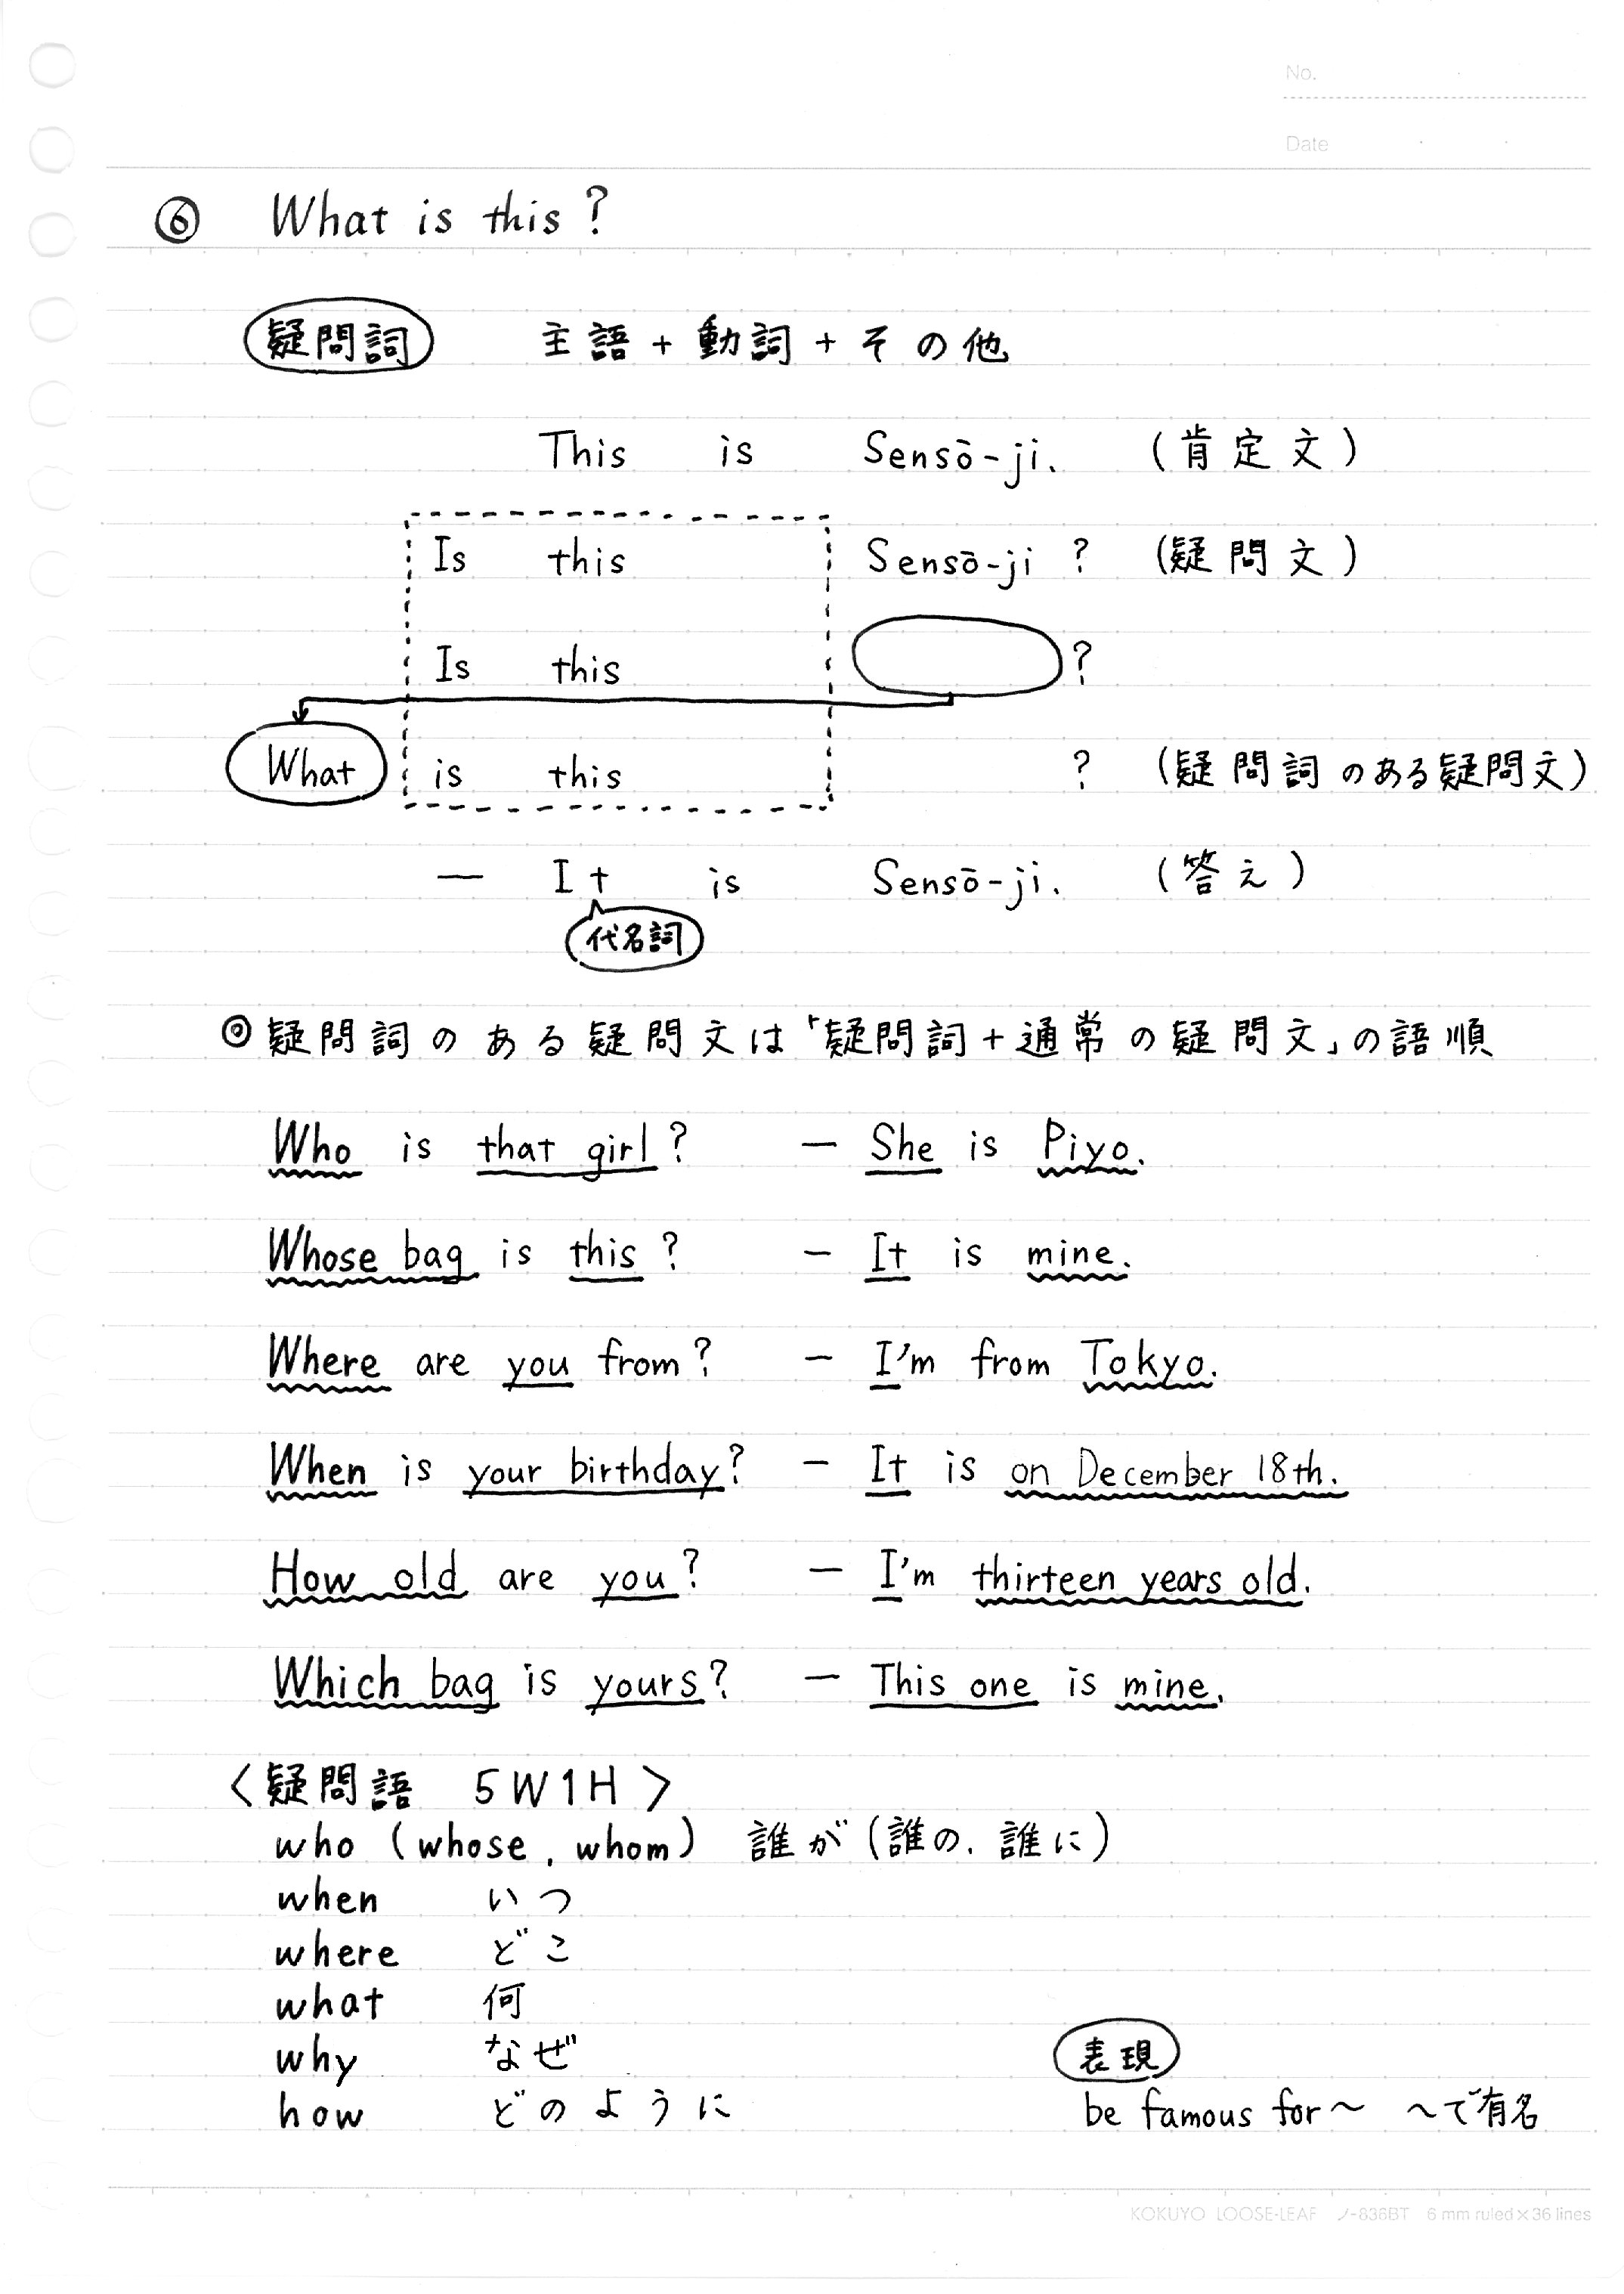 No.
Date
⑥ What is this?
疑問詞 主語 + 動詞 + その他
This is Sensō-ji. (肯定文)
Is this Sensō-ji ? (疑問文)
Is this ?
What is this ? (疑問詞のある疑問文)
— It is Sensō-ji. (答え)
代名詞
◎疑問詞のある疑問文は「疑問詞+通常の疑問文」の語順
Who is that girl? — She is Piyo.
Whose bag is this? — It is mine.
Where are you from? — I'm from Tokyo.
When is your birthday? — It is on December 18th.
How old are you? — I'm thirteen years old.
Which bag is yours? — This one is mine.
〈疑問語 5W1H〉
who (whose, whom) 誰が(誰の. 誰に)
when いつ
where どこ
what 何
why なぜ
how どのように
表現
be famous for〜 〜で有名
KOKUYO LOOSE-LEAF ノ-836BT 6 mm ruled×36 lines